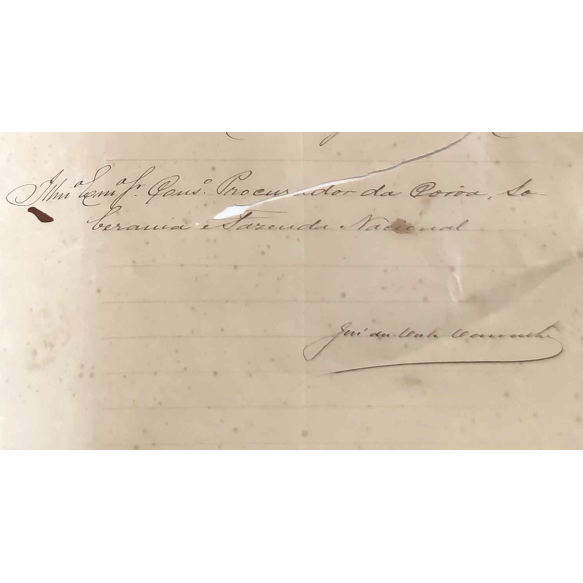 Illmº Exmº Sr. Consº. Procurador da Coroa, So
berania e Fazenda Nacional
José da